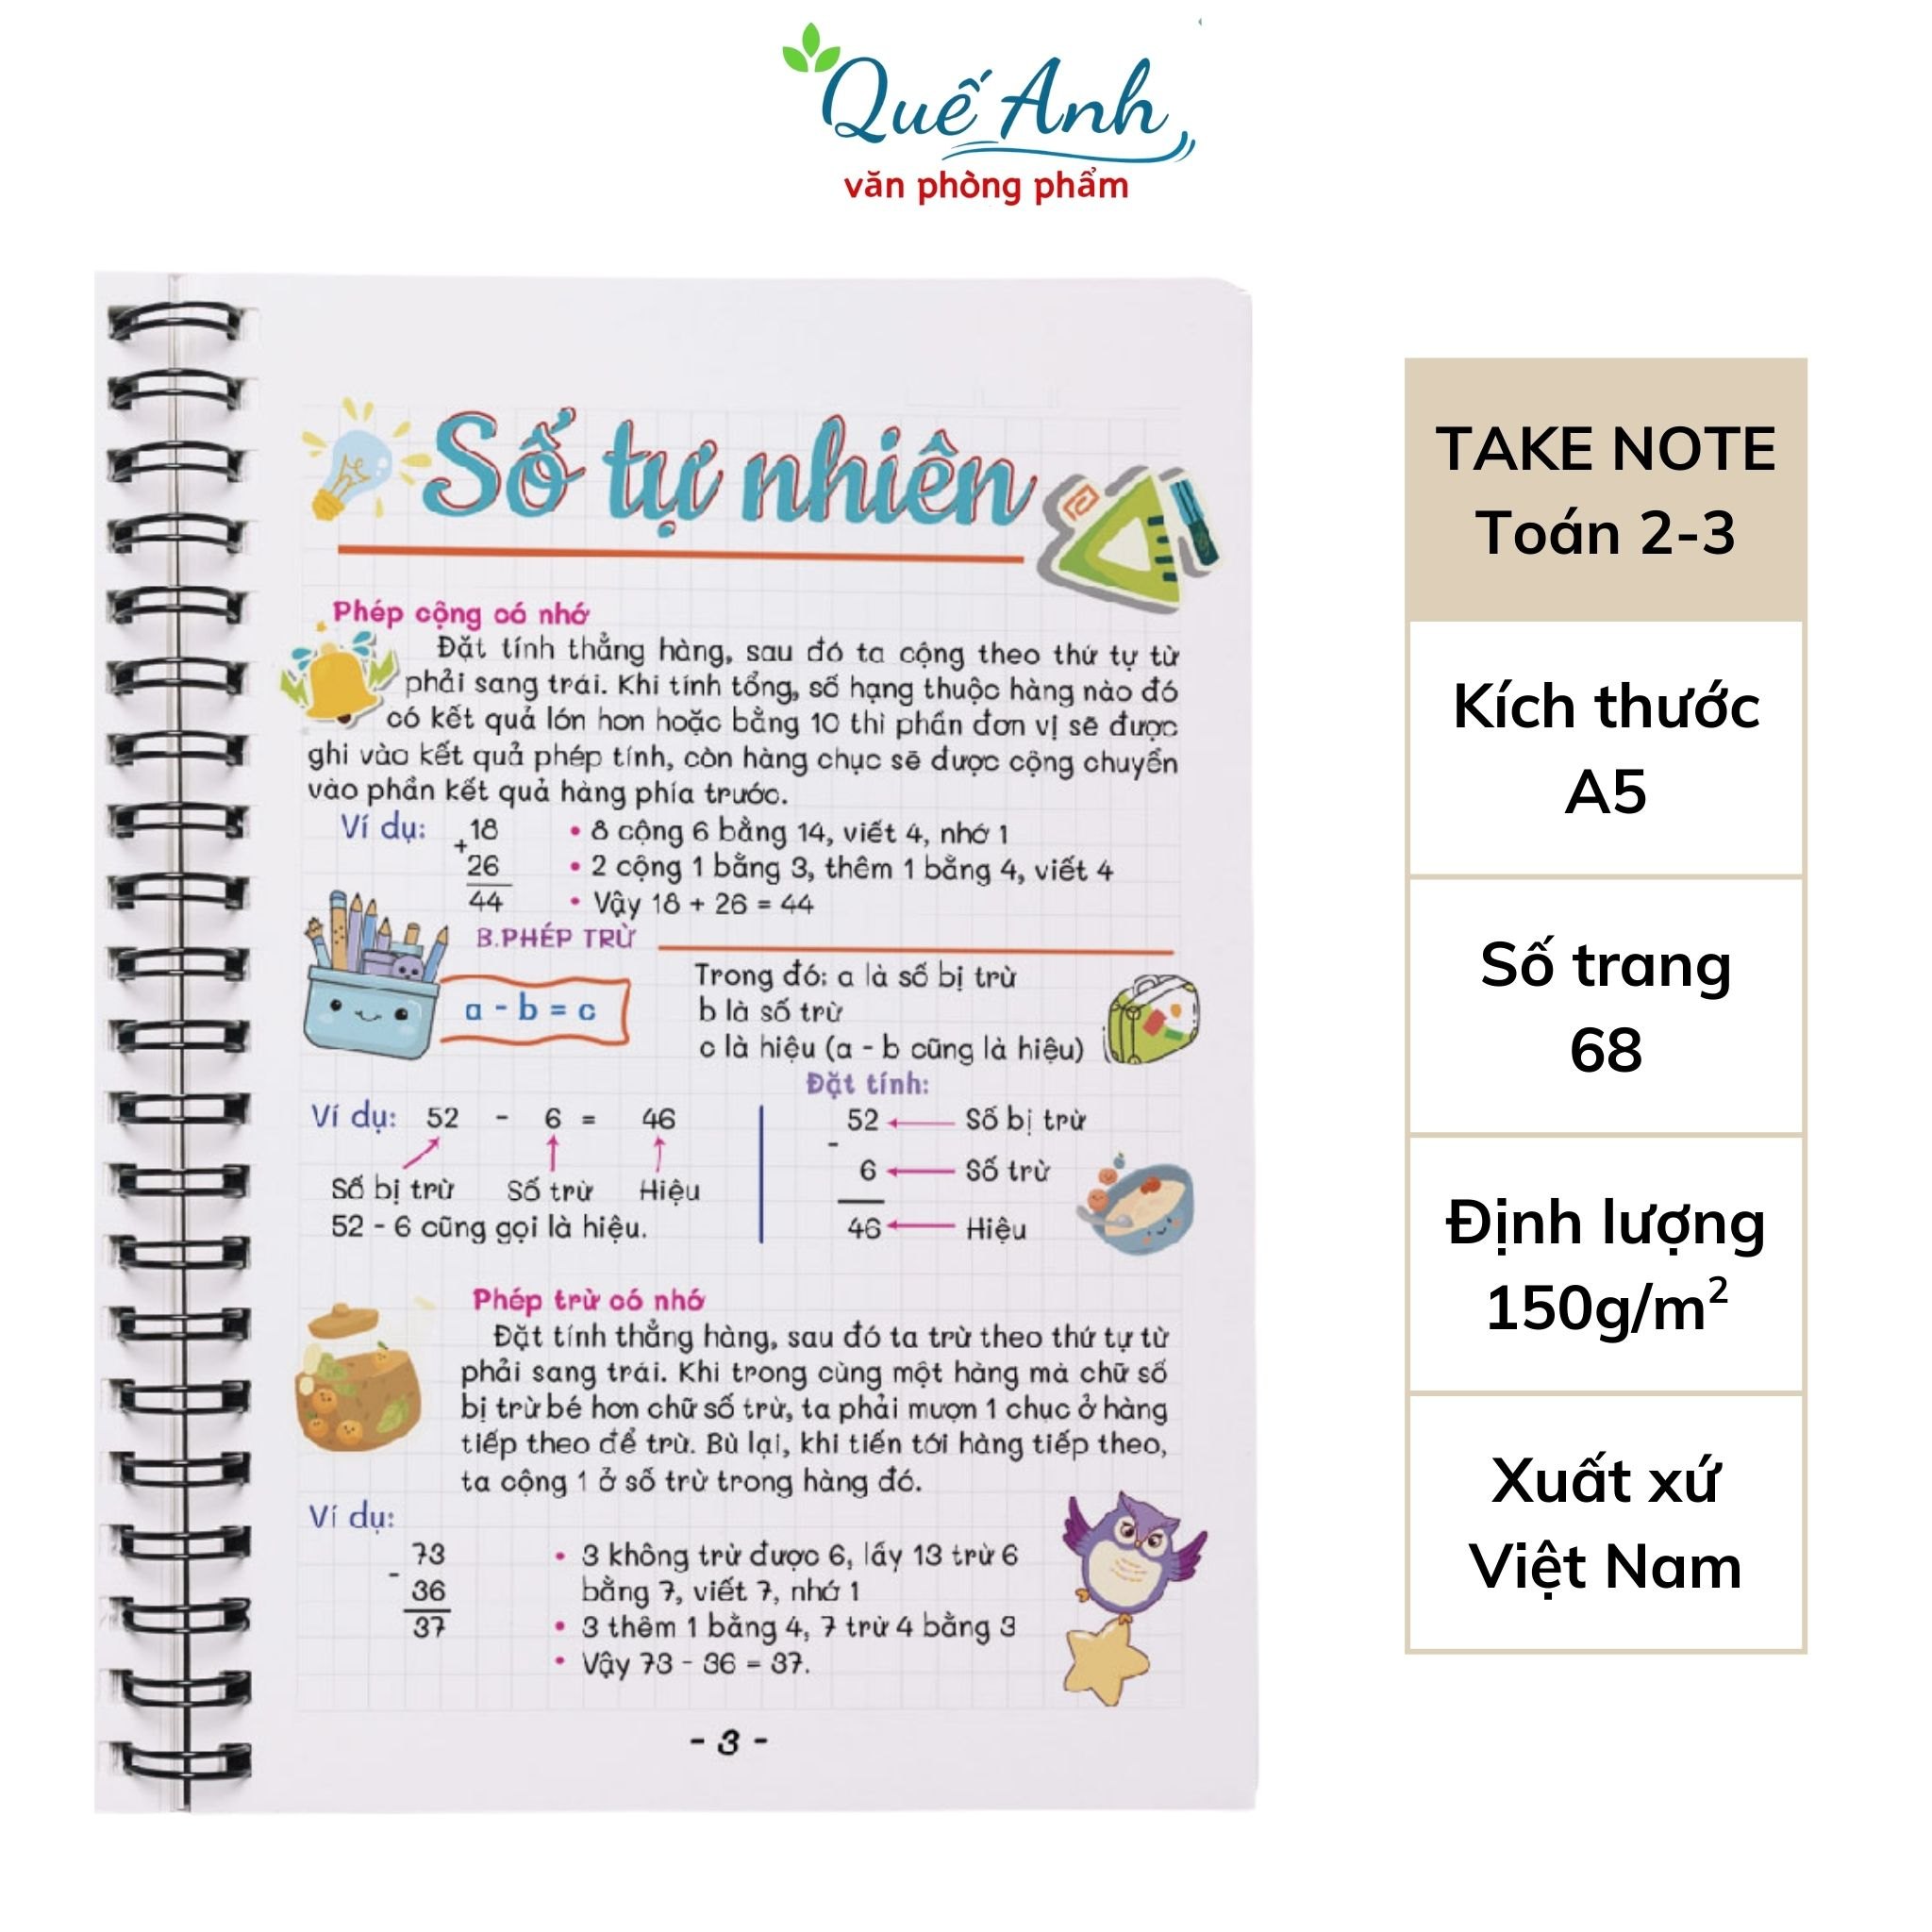 Quế Anh
văn phòng phẩm
Số tự nhiên
Phép cộng có nhớ
Đặt tính thẳng hàng, sau đó ta cộng theo thứ tự từ
phải sang trái. Khi tính tổng, số hạng thuộc hàng nào đó
có kết quả lớn hơn hoặc bằng 10 thì phần đơn vị sẽ được
ghi vào kết quả phép tính, còn hàng chục sẽ được cộng chuyển
vào phần kết quả hàng phía trước.
Ví dụ:
18
+
26
44
• 8 cộng 6 bằng 14, viết 4, nhớ 1
• 2 cộng 1 bằng 3, thêm 1 bằng 4, viết 4
• Vậy 18 + 26 = 44
B.PHÉP TRỪ
a - b = c
Trong đó: a là số bị trừ
b là số trừ
c là hiệu (a - b cũng là hiệu)
Ví dụ: 52 - 6 = 46
Số bị trừ Số trừ Hiệu
52 - 6 cũng gọi là hiệu.
Đặt tính:
52 Số bị trừ
-
6 Số trừ
46 Hiệu
Phép trừ có nhớ
Đặt tính thẳng hàng, sau đó ta trừ theo thứ tự từ
phải sang trái. Khi trong cùng một hàng mà chữ số
bị trừ bé hơn chữ số trừ, ta phải mượn 1 chục ở hàng
tiếp theo để trừ. Bù lại, khi tiến tới hàng tiếp theo,
ta cộng 1 ở số trừ trong hàng đó.
Ví dụ:
73
-
36
37
• 3 không trừ được 6, lấy 13 trừ 6
bằng 7, viết 7, nhớ 1
• 3 thêm 1 bằng 4, 7 trừ 4 bằng 3
• Vậy 73 - 36 = 37.
- 3 -
TAKE NOTE
Toán 2-3
Kích thước
A5
Số trang
68
Định lượng
150g/m²
Xuất xứ
Việt Nam